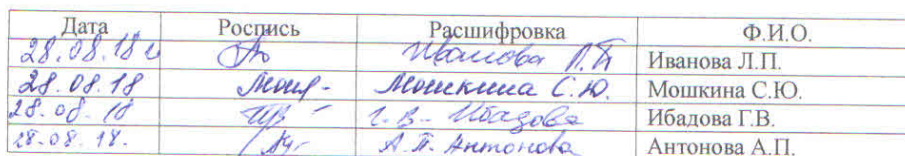 Дата Роспись Расшифровка Ф.И.О.
28.08.18г Иванова Л.П. Иванова Л.П.
28.08.18 Мошк- Мошкина С.Ю. Мошкина С.Ю.
28.08.18 Г.В. Ибадова Ибадова Г.В.
28.08.18. А.П. Антонова Антонова А.П.